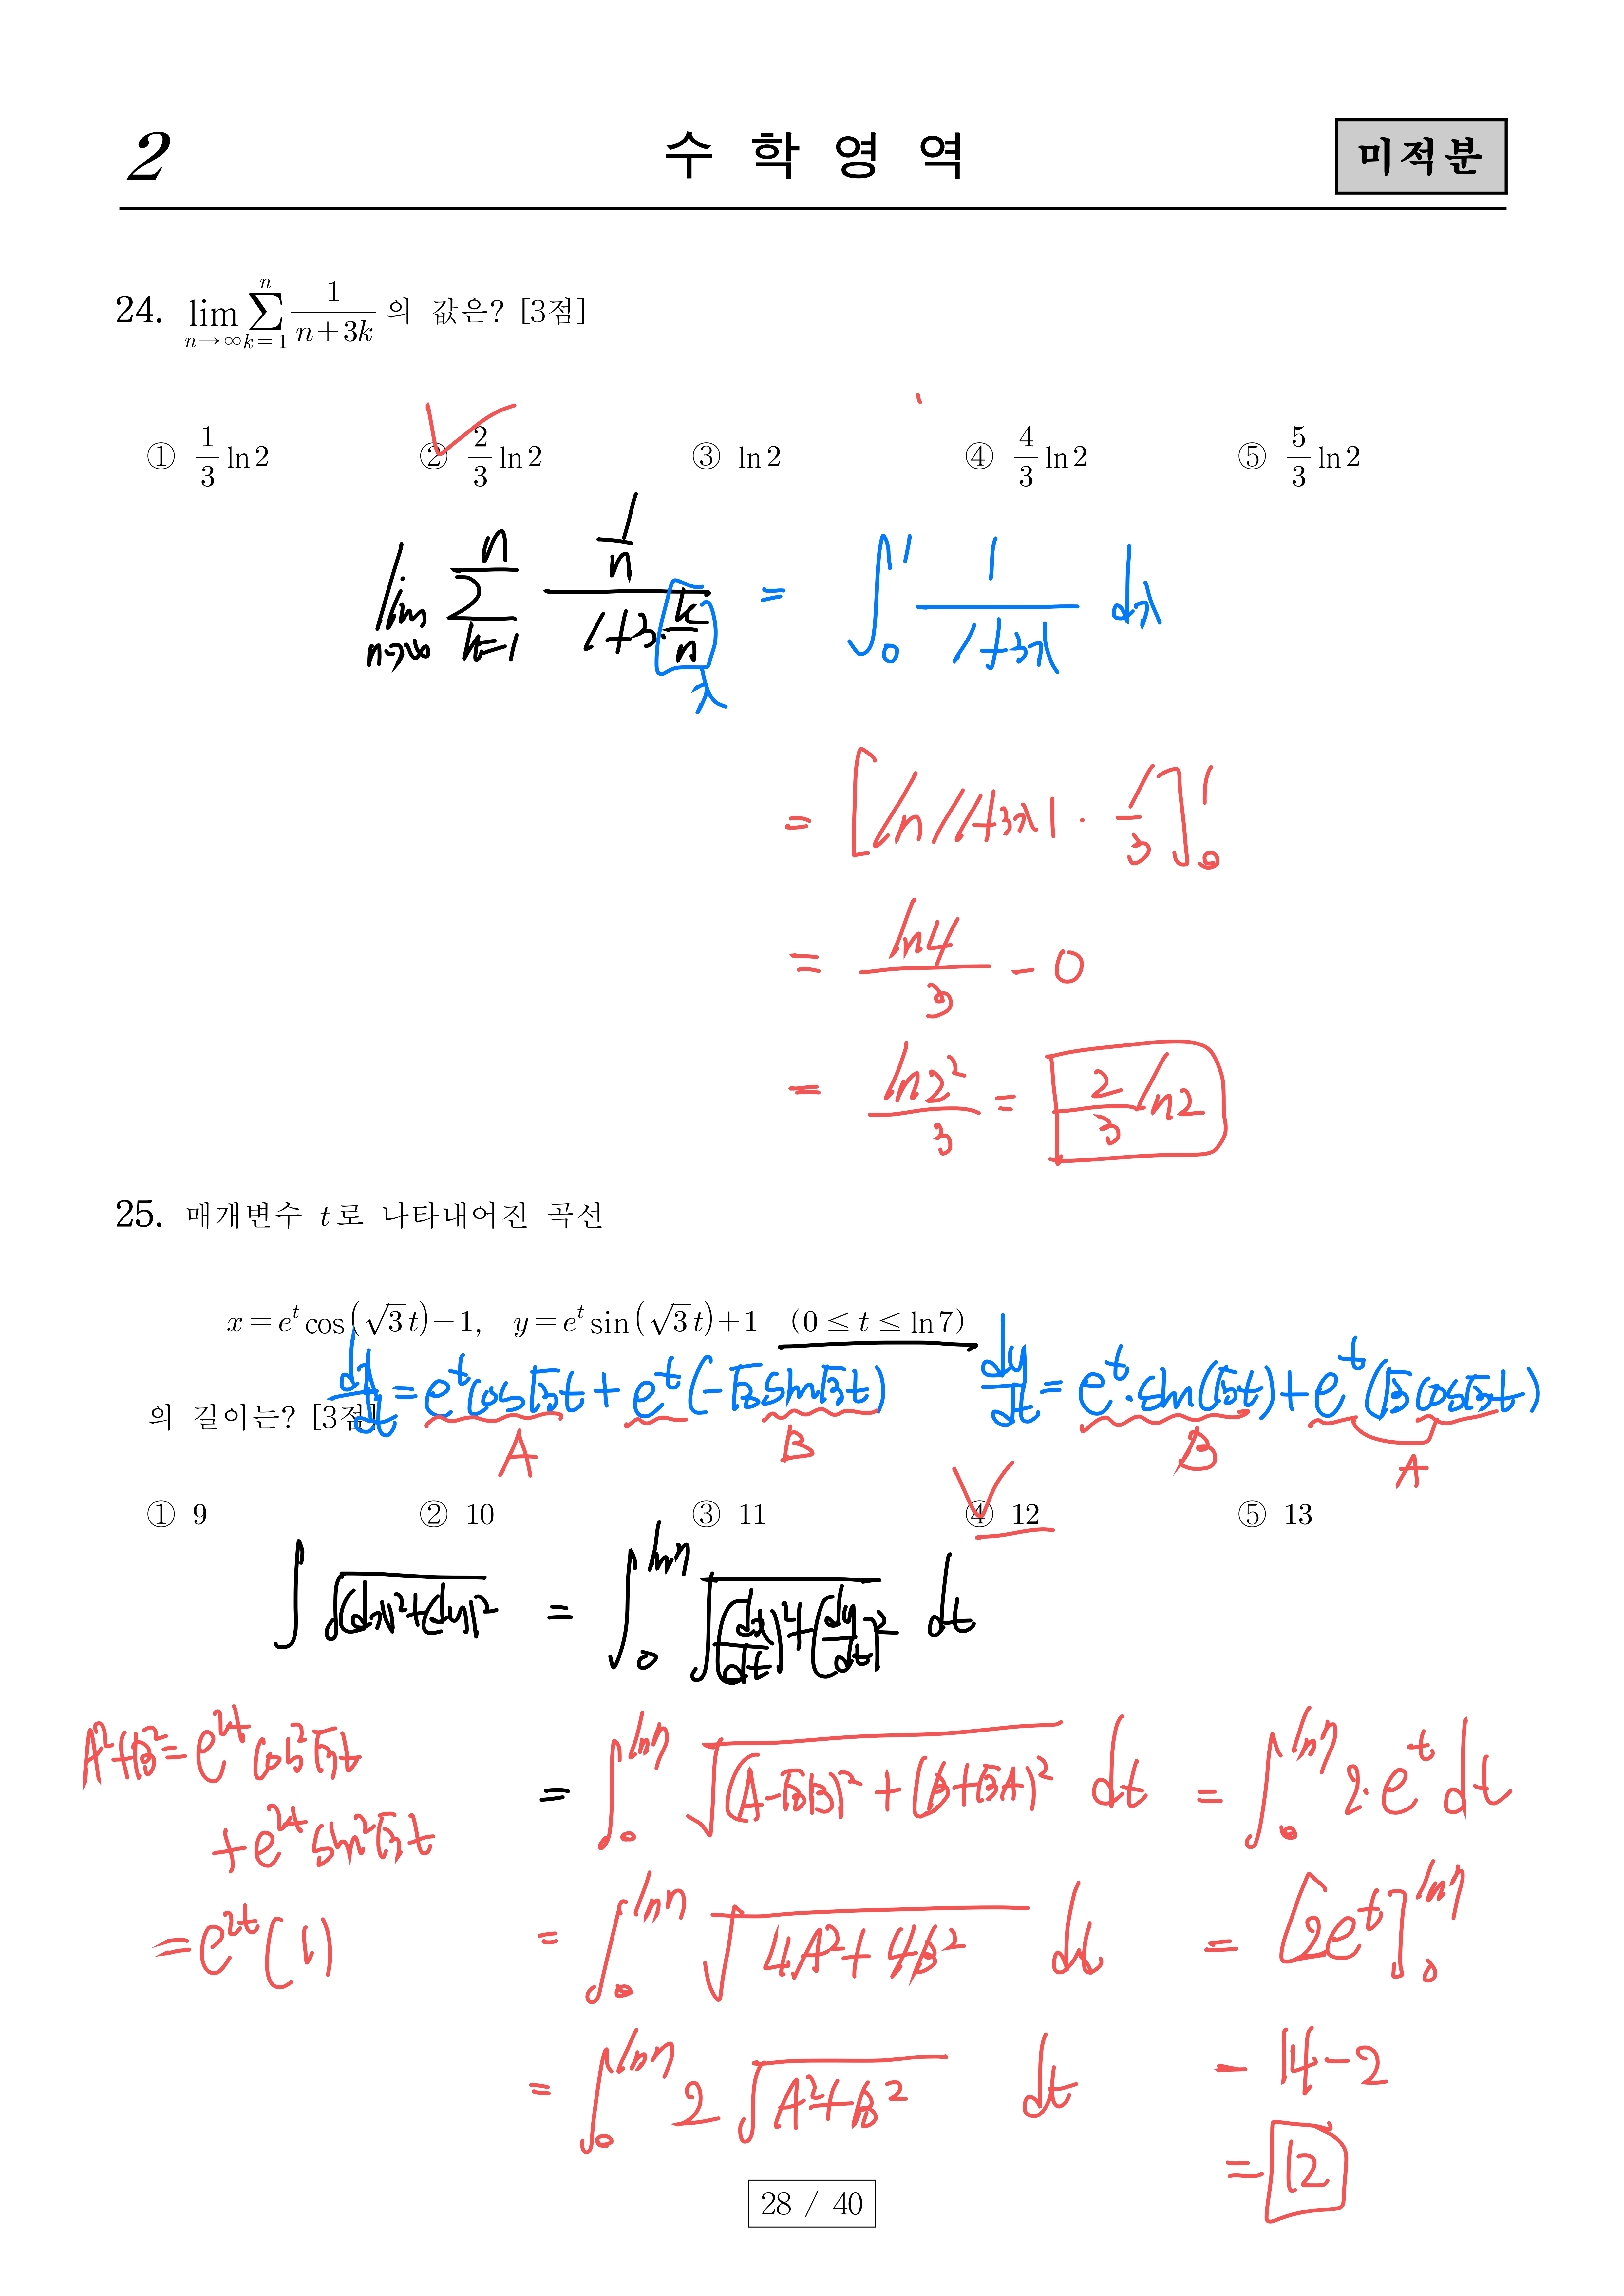 2
수 학 영 역
미적분
24. lim_{n→∞} ∑_{k=1}^{n} 1/(n+3k) 의 값은? [3점]
① 1/3 ln2 ② 2/3 ln2 ③ ln2 ④ 4/3 ln2 ⑤ 5/3 ln2
lim_{n→∞} ∑_{k=1}^{n} (1/n)/(1+3·k/n) = ∫_0^1 1/(1+3x) dx
x
= [ln|1+3x|·1/3]_0^1
= ln4/3 - 0
= ln2²/3 = 2/3 ln2
25. 매개변수 t로 나타내어진 곡선
x=e^t cos(√3 t)-1, y=e^t sin(√3 t)+1 (0≤t≤ln7)
dx/dt = e^t cos√3t + e^t(-√3 sin√3t) dy/dt = e^t·sin(√3t)+e^t(√3 cos√3t)
의 길이는? [3점]
A B B A
① 9 ② 10 ③ 11 ④ 12 ⑤ 13
∫√((dx)²+(dy)²) = ∫_0^{ln7} √((dx/dt)²+(dy/dt)²) dt
A²+B²=e^{2t}cos²√3t
+e^{2t}sin²√3t
=e^{2t}(1)
= ∫_0^{ln7} √((A-√3B)²+(B+√3A)²) dt
= ∫_0^{ln7} √(4A²+4B²) dt
= ∫_0^{ln7} 2√(A²+B²) dt
= ∫_0^{ln7} 2·e^t dt
= [2e^t]_0^{ln7}
= 14-2
= 12
28 / 40